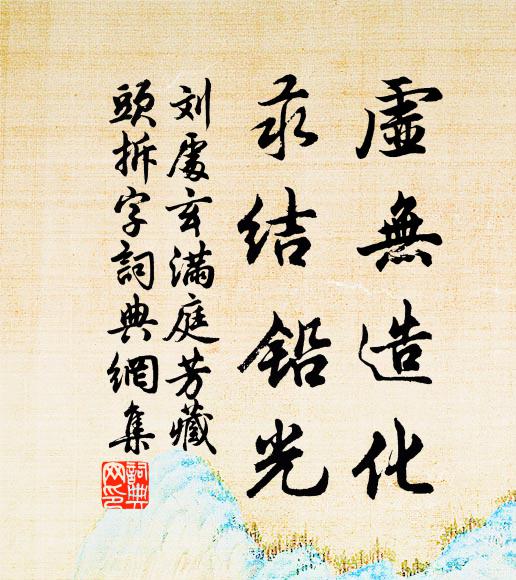 虛無造化
汞結鉛光
刘處玄滿庭芳藏
頭拆字詞典網集
詞典
网印